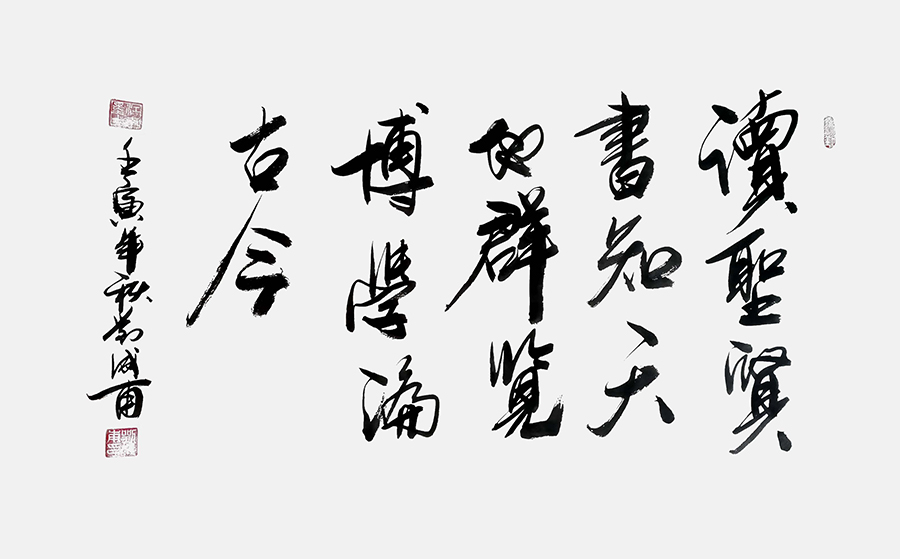 讀聖賢
書知天
地群覽
博學論
古今
壬寅年秋